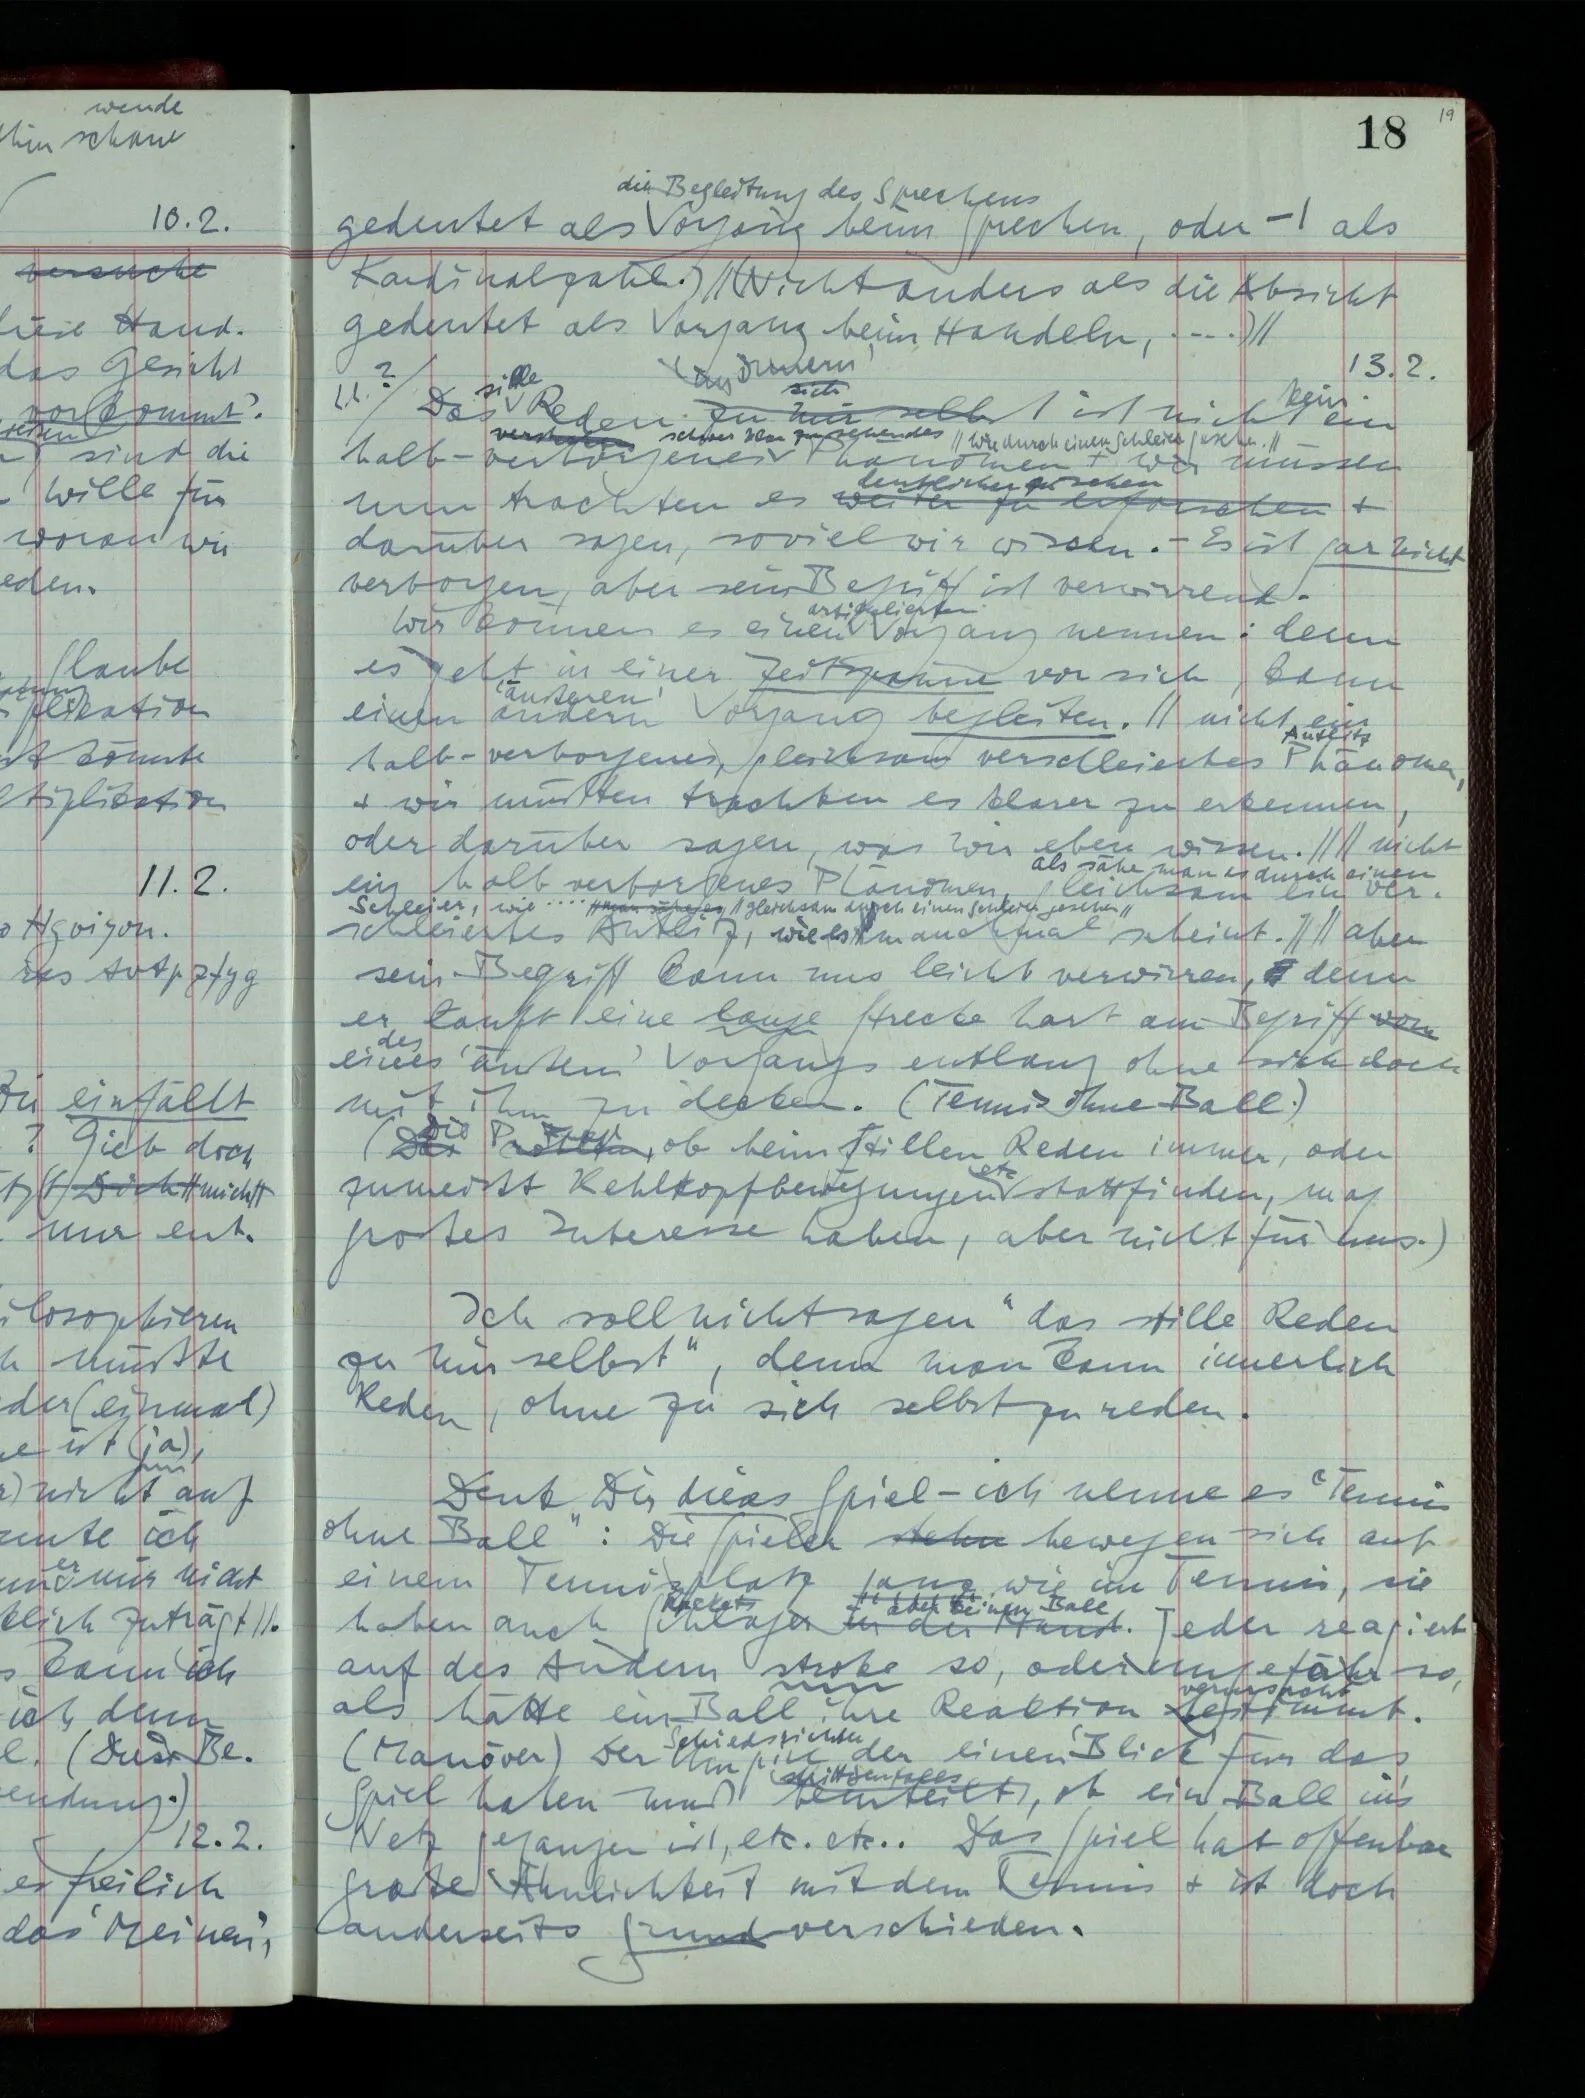 wende
hin schaue
10.2.
versuche
diese Hand.
das Gesicht
vorkommt'.
sind die
Wille für
woran wir
reden.
Glaube
plikation
könnte
ltiplikation
11.2.
einfällt
? Gieb doch
Dich // mich //
nur ent-
ilosophieren
müßte
der (einmal)
ist (ja),
nicht auf
nnte ich
mir nicht
klich zuträgt //.
kann ich
ich denn
(Diese Be-
endung.)
12.2.
es freilich
das 'Meinen',
18
19
die Begleitung des Sprechens
gedeutet als Vorgang beim Sprechen, oder –1 als
Kardinalzahl.) // (Nicht anders als die Absicht
gedeutet als Vorgang beim Handeln, ....) //
13.2.
stille
'im Innern'
sich
kein
Das Reden zu mir selbst ist nicht ein
schwer klar zu sehendes // wie durch einen Schleier gesehen. //
halb-verborgenes Phänomen + wir müssen
deutlicher zu sehen
nun trachten es weiter zu erforschen +
darüber sagen, soviel wir wissen. – Es ist gar nicht
verborgen, aber sein Begriff ist verwirrend.
artikulierten
Wir können es einen Vorgang nennen: denn
es geht in einer Zeitspanne vor sich, kann
'äußeren'
einen andern Vorgang begleiten. // nicht ein
Antlitz
halb-verborgenes, gleichsam verschleiertes Phänomen,
+ wir müßten trachten es klarer zu erkennen,
oder darüber sagen, was wir eben wissen. // // nicht
als sähe man es durch einen
ein halb verborgenes Phänomen, gleichsam ein ver-
Schleier, wie .... // man sähe es // gleichsam durch einen Schleier gesehen //
schleiertes Antlitz, wie es manchmal scheint. // // aber
sein Begriff kann uns leicht verwirren, denn
er läuft eine lange Strecke hart am Begriff vom
des
eines 'äußern' Vorgangs entlang ohne sich doch
mit ihm zu decken. (Tennis ohne Ball.)
Die Frage
(Das Problem, ob beim stillen Reden immer, oder
etc
zumeist Kehlkopfbewegungen stattfinden, mag
großes Interesse haben, aber nicht für uns.)
Ich soll nicht sagen "das stille Reden
zu mir selbst", denn man kann innerlich
Reden, ohne zu sich selbst zu reden.
Denk Dir dieses Spiel – ich nenne es "Tennis
ohne Ball": Die Spieler stehn bewegen sich auf
einem Tennisplatz ganz wie im Tennis, sie
Rackets aber keinen Ball
haben auch Schläger in der Hand. Jeder reagiert
auf des Andern stroke so, oder ungefähr so,
verursacht
als hätte ein Ball ihre Reaktion bestimmt.
Schiedsrichter
(Manöver) Der Umpire der einen 'Blick' für das
Spiel haben muß beurteilt, ob ein Ball ins
Netz gegangen ist, etc. etc.. Das Spiel hat offenbar
große Ähnlichkeit mit dem Tennis + ist doch
anderseits grundverschieden.